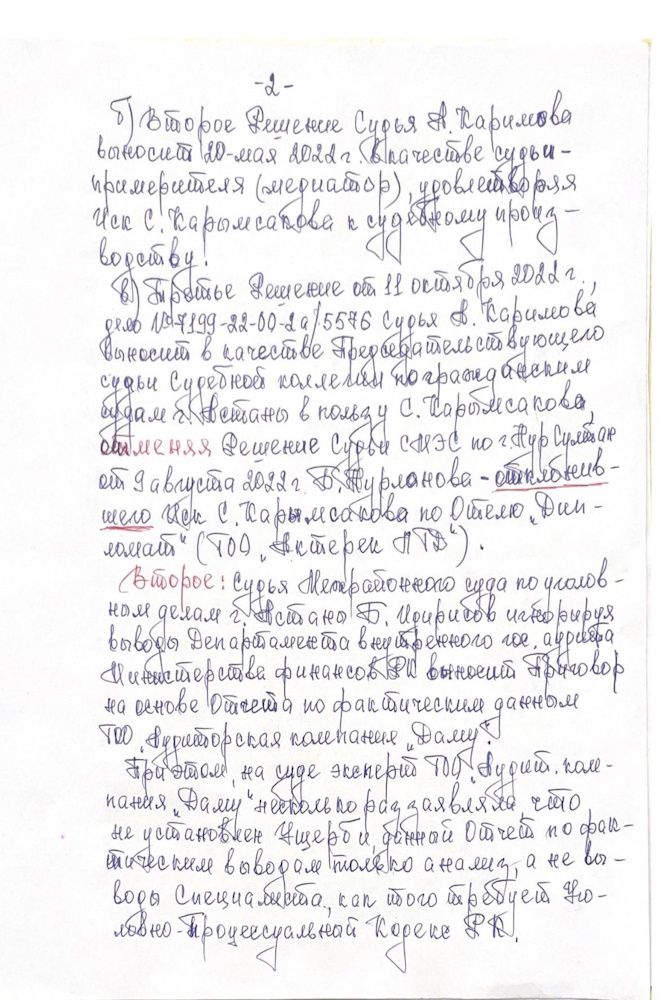 -2-
б) Второе Решение Судья А. Каримова
выносит 20-мая 2022 г. в качестве судьи-
примерителя (медиатор), удовлетворяя
Иск С. Карымсакова к судебному произ-
водству.
в) Третье Решение от 11 октября 2022 г.,
дело № 7199-22-00-2а/5576 Судья А. Каримова
выносит в качестве Председательствующего
судьи Судебной коллегии по гражданским
судам г. Астаны в пользу С. Карымсакова,
отменяя Решение Судьи СМЭС по г. Нур Султан
от 9 августа 2022 г. Б. Нурланова - отклонив-
шего Иск С. Карымсакова по Отелю „Дип-
ломат" (ТОО „Актерек ЛТД").
Второе: Судья Межрайонного суда по уголов-
ным делам г. Астаны Б. игнорируя
выводы Департамента внутренного гос. аудита
Министерства финансов РК выносит Приговор
на основе Отчета по фактическим данным
ТОО „Аудиторская компания „Даму".
При этом, на суде эксперт ТОО „Аудит. ком-
пания „Даму" несколько раз заявляла, что
не установлен Ущерб и, данный Отчет по фак-
тическим выводам только анализ, а не вы-
воды Специалиста, как того требует Уго-
ловно-Процессуальный Кодекс РК.